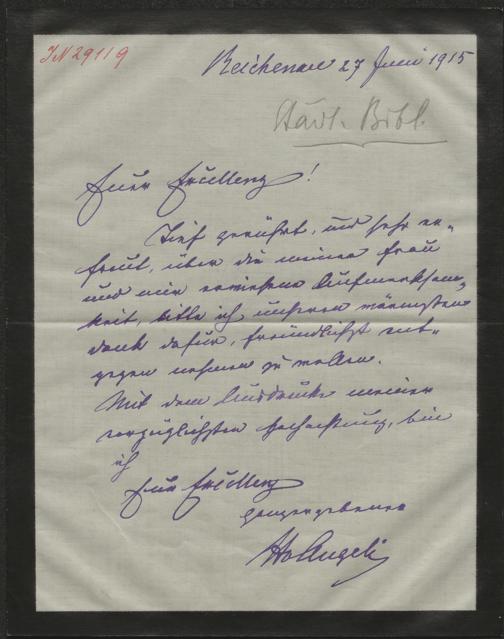 IN 29119
Reichenau 27 Juni 1915
Städt. Bibl.
Euer Exzellenz!
Tief gerührt, und sehr er-
freut, über die meiner Frau
und mir erwiesene Aufmerksam-
keit, bitte ich unseren wärmsten
Dank dafür, freundlichst ent-
gegen nehmen zu wollen.
Mit dem Ausdrucke meiner
vorzüglichsten Hochachtung, bin
ich
Euer Exzellenz
ganz ergebener
HvAngeli